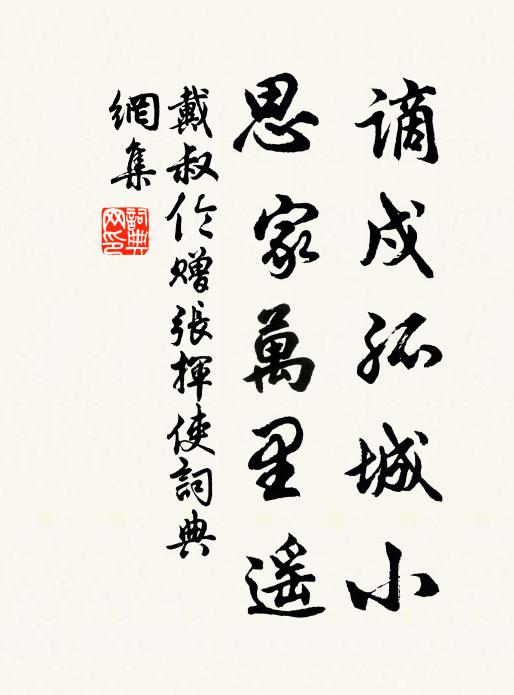 謫戍孤城小
思家萬里遥
戴叔伦贈張揮使詞典
網集
詞典
网印